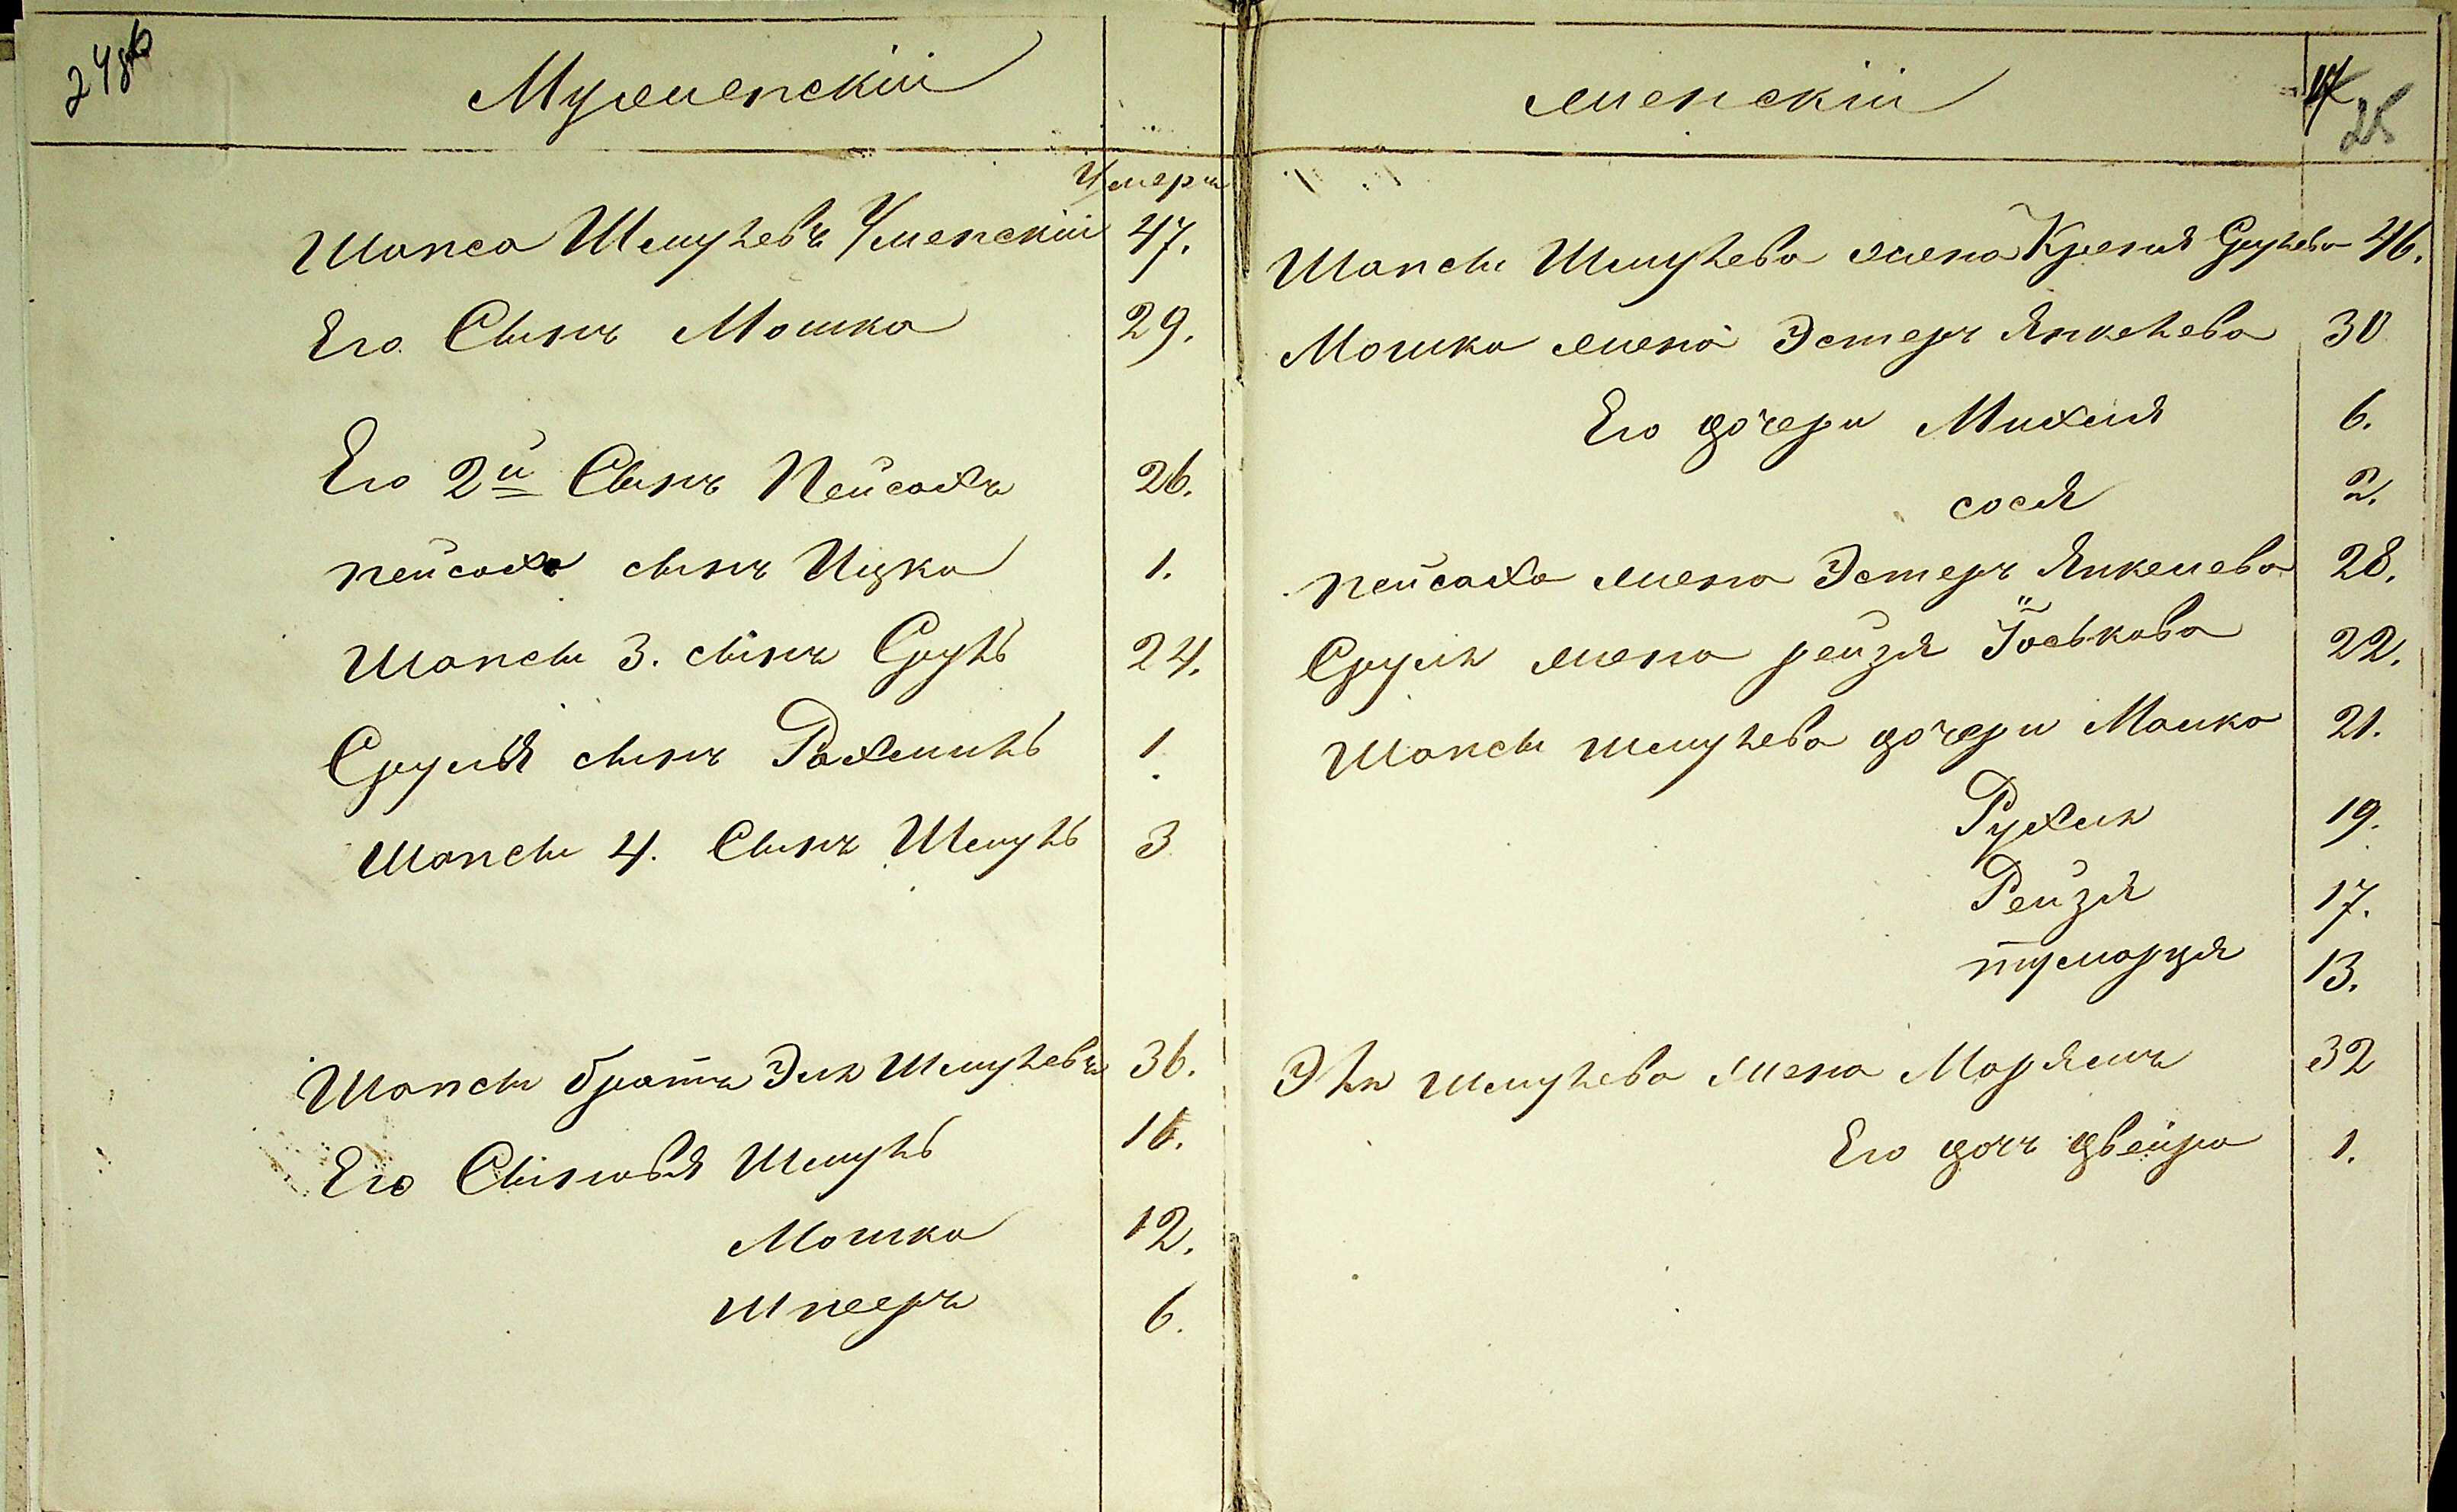 24об
Мужескій
Умеръ
Шапса Шмулевъ Уменскій 47.
Его Сынъ Мошка 29.
Его 2й Сынъ Пейсахъ 26.
пейсаха сынъ Ицка 1.
Шапсы 3. сынъ Сруль 24.
Сруля сынъ Рахмиль 1.
Шапсы 4. Сынъ Шмуль 3
Шапсы братъ Эля Шмулевъ 36.
Его Сыновья Шмуль 16.
Мошка 12.
Шнееръ 6.
женскій
25
Шапсы Шмулева жена Срулева 46.
Мошка жена Эстеръ Янкелева 30
Его дочери Михля 6.
сося 2.
пейсаха жена Эстеръ Янкелева 28.
Сруля жена рейзя Іоськова 22.
Шапсы шмулева дочери Малка 21.
Рухля 19.
Рейзя 17.
тумарця 13.
Эля шмулева жена Марьямъ 32
Его дочь двейра 1.